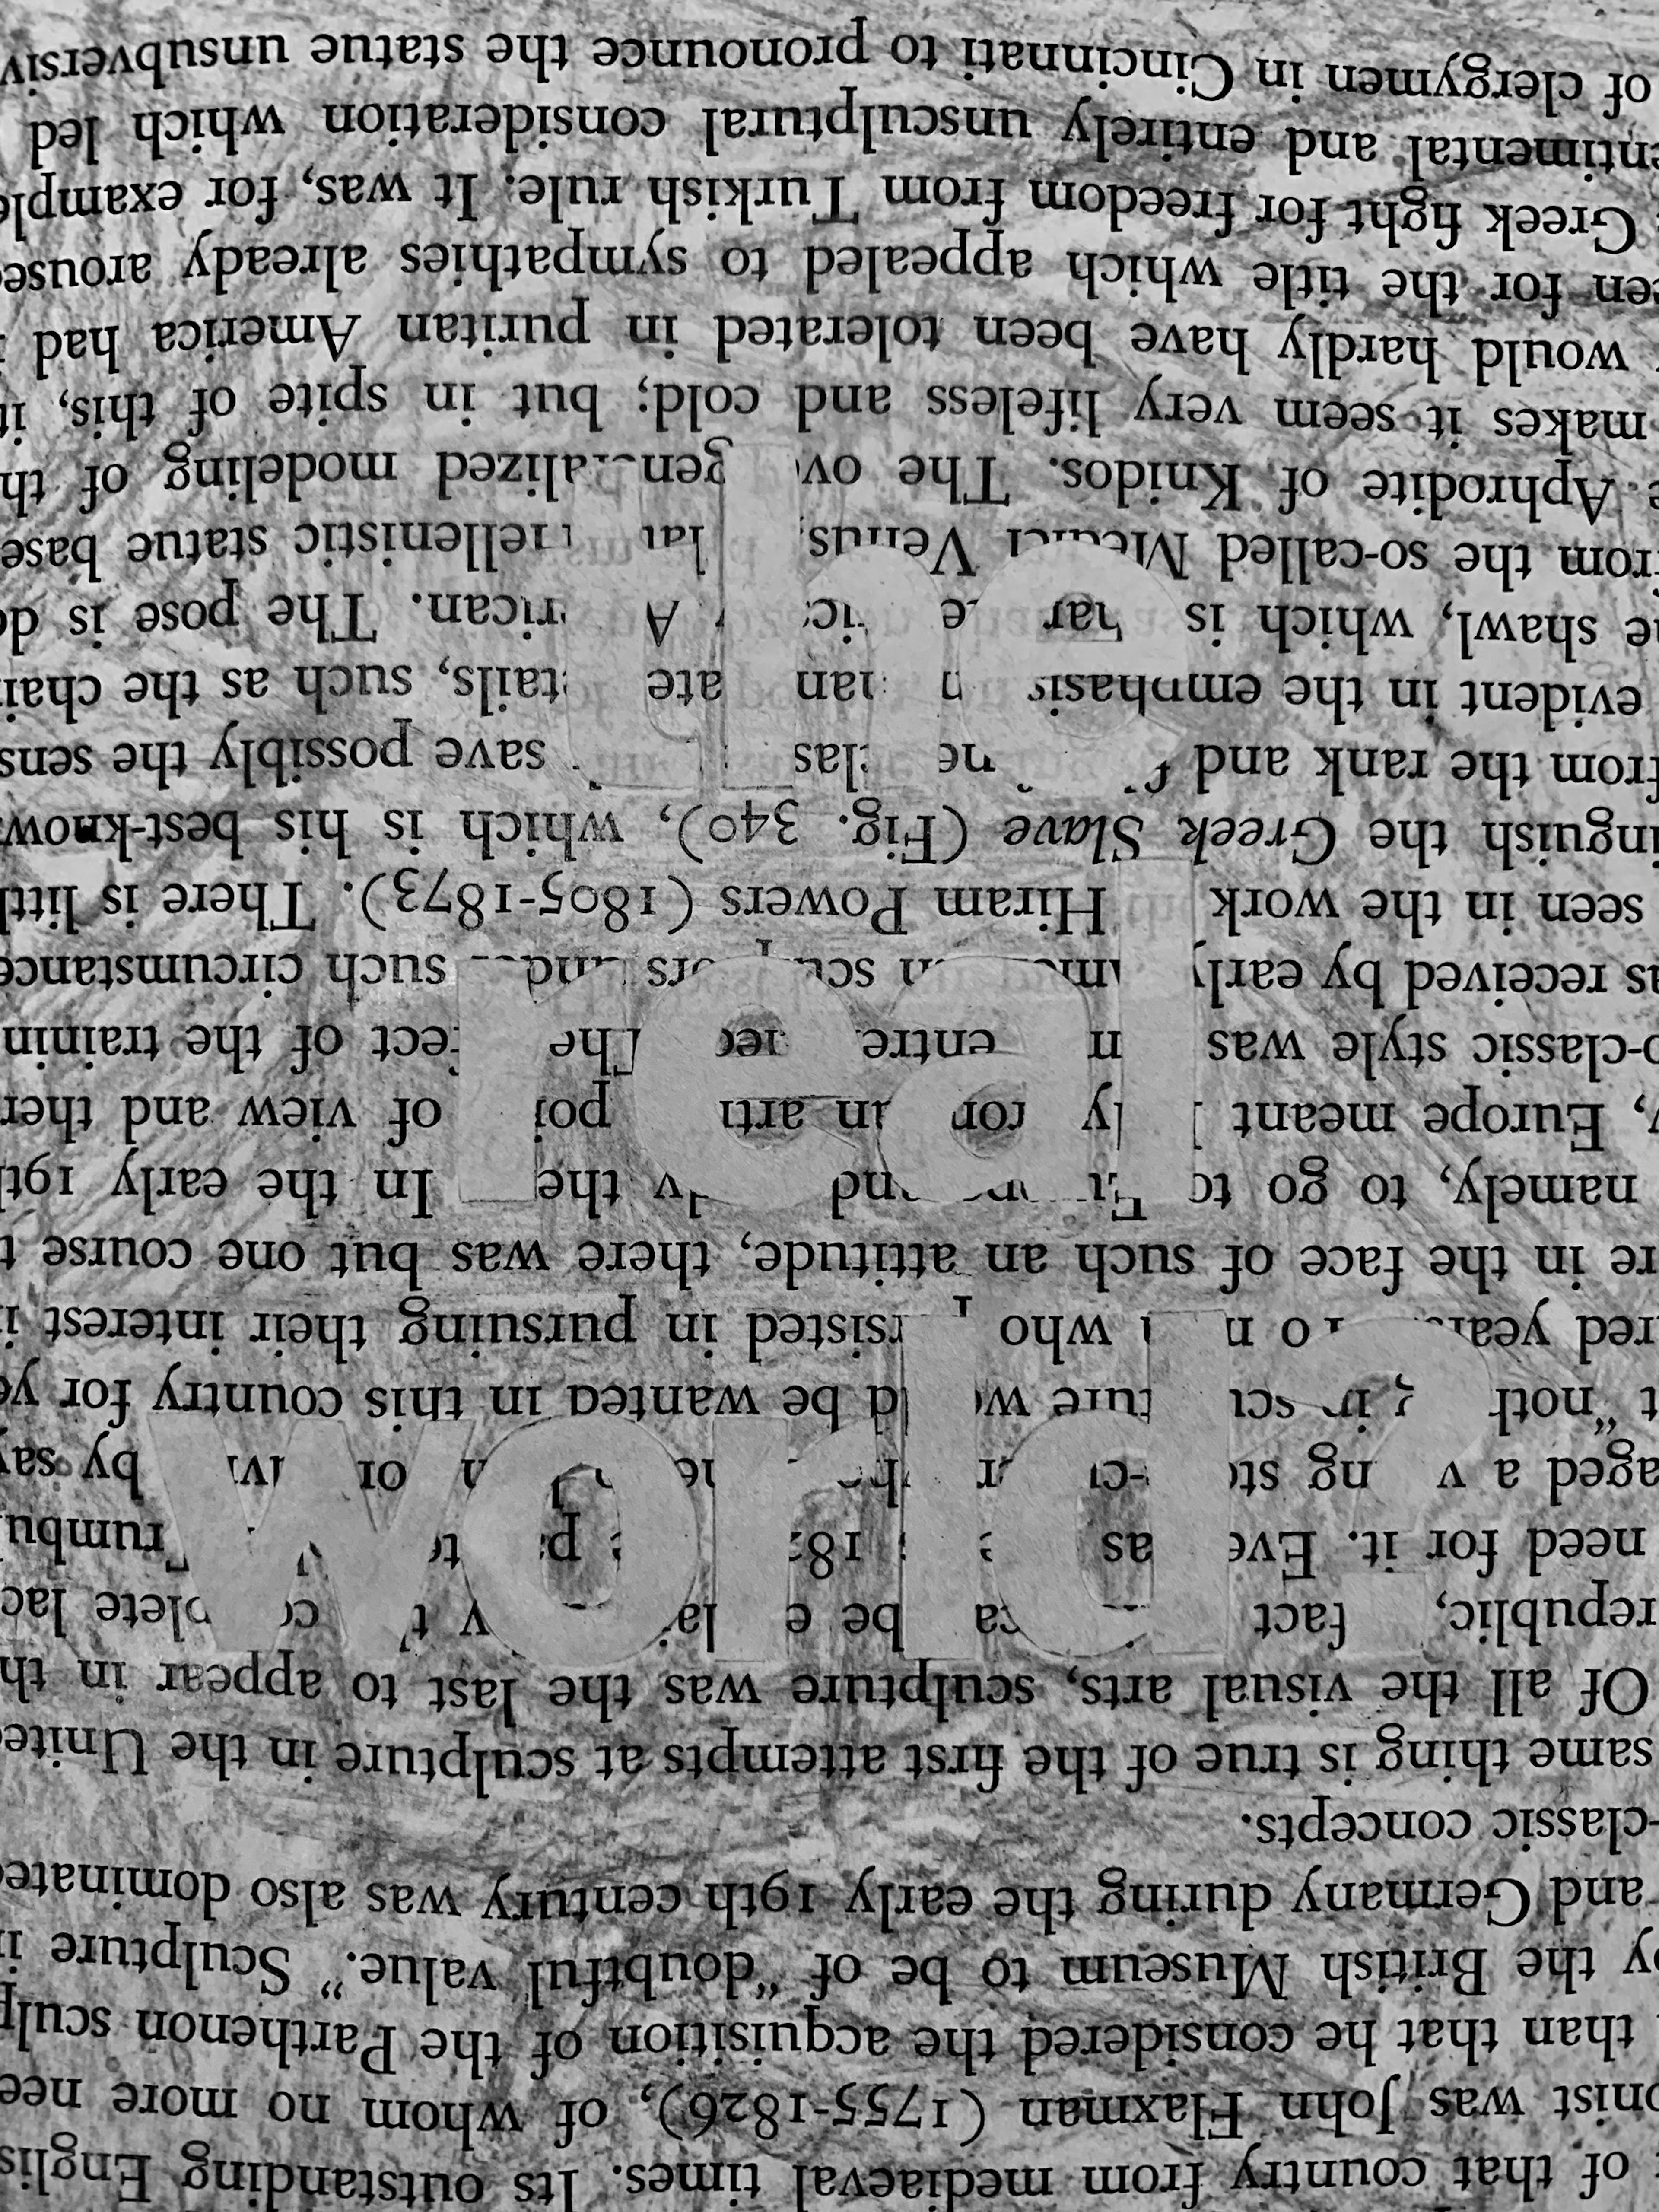 the
real
world?
of that country from mediaeval times. Its outstanding Englis
onist was John Flaxman (1755-1826), of whom no more nee
than that he considered the acquisition of the Parthenon sculp
by the British Museum to be of “doubtful value.” Sculpture i
and Germany during the early 19th century was also dominate
-classic concepts.
same thing is true of the first attempts at sculpture in the Unite
Of all the visual arts, sculpture was the last to appear in th
republic, fact be lac
need for it. as 18 rumbu
aged a by say
t “noth ture be wanted in this country for ye
red years who sisted in pursuing their interest i
re in the face of such an attitude, there was but one course t
namely, to go to the In the early 19th
, Europe meant of view and ther
o-classic style was entire The fect of the trainin
as received by early such circumstance
seen in the work Hiram Powers (1805-1873). There is littl
inguish the Greek Slave (Fig. 340), which is his best-know
from the rank and save possibly the sens
evident in the emphasis tails, such as the chai
he shawl, which is rican. The pose is de
from the so-called Medici Venus, Hellenistic statue base
e Aphrodite of Knidos. The generalized modeling of th
makes it seem very lifeless and cold; but in spite of this, it
would hardly have been tolerated in puritan America had i
een for the title which appealed to sympathies already arouse
Greek fight for freedom from Turkish rule. It was, for example
entimental and entirely unsculptural consideration which led
of clergymen in Cincinnati to pronounce the statue unsubversiv